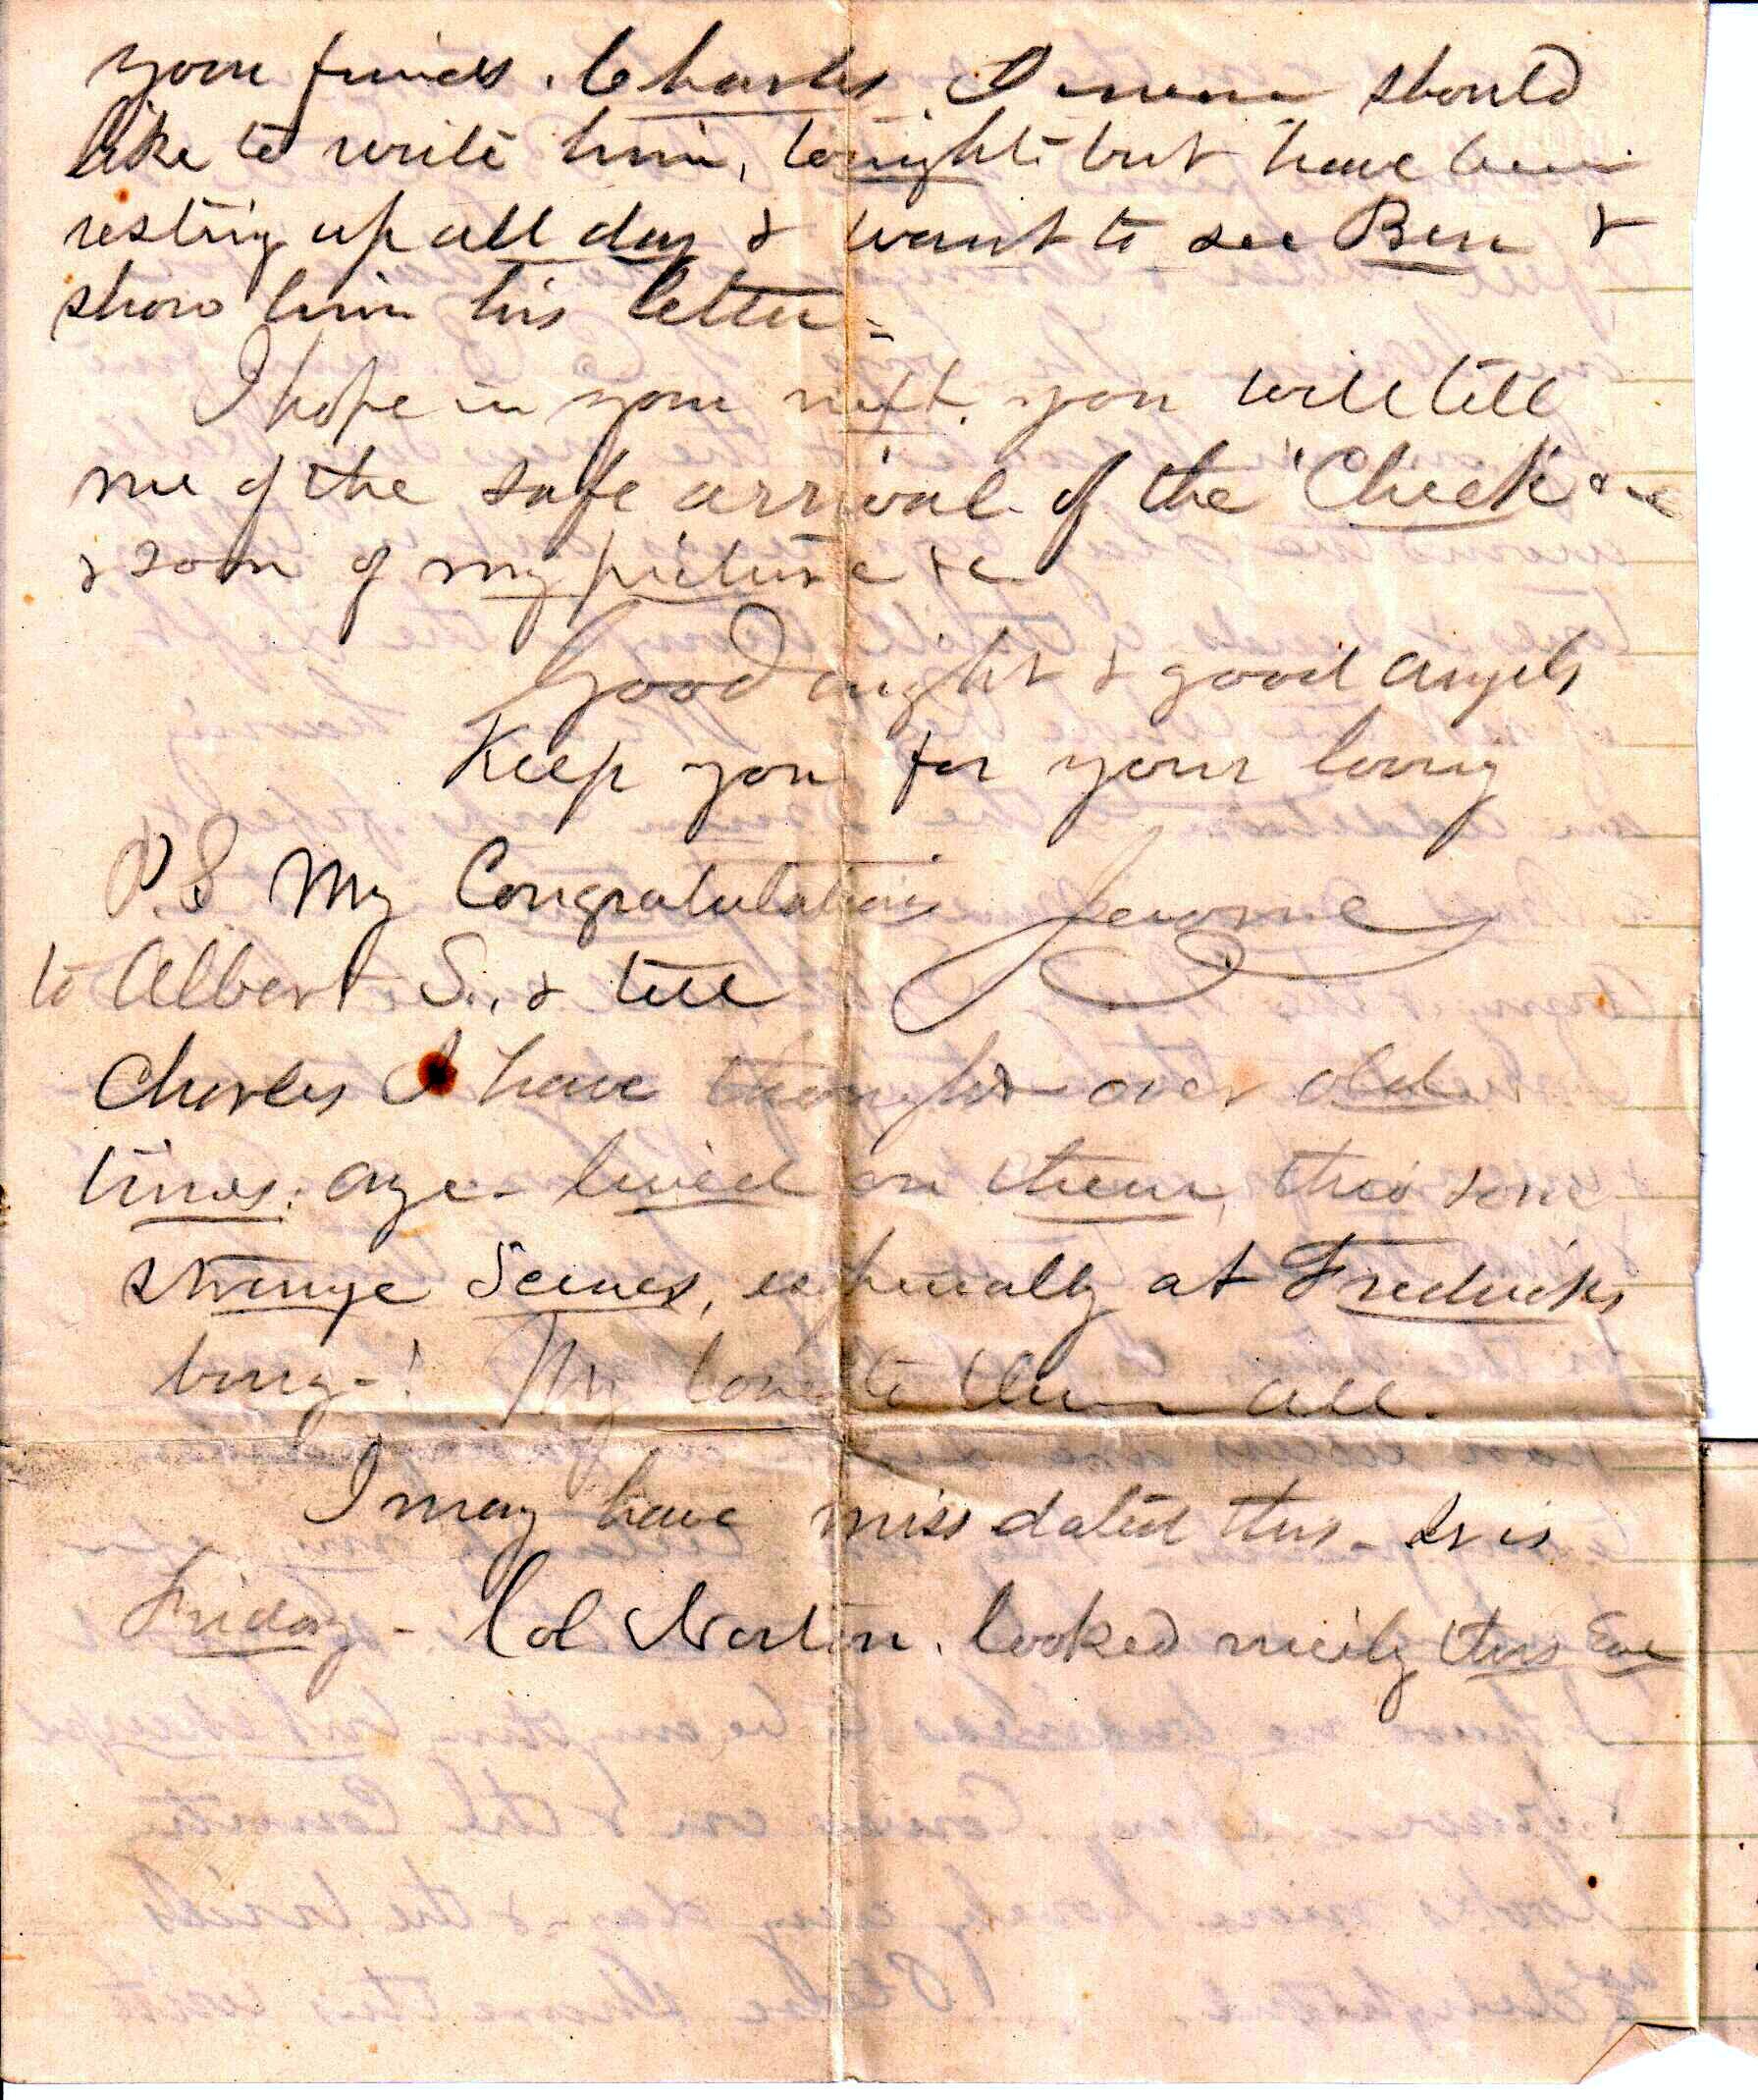 your friends. Charles I mean should
like to write him, tonight but have been
resting up all day & want to see Ben &
show him his letter =
I hope in your next, you will tell
me of the safe arrival of the "Check" &c
& soon of my picture &c
Good night & good angels
Keep you for your loving
Jerome
P.S My Congratulations
to Albert S., & tell
Charles I have thought over old
times. aye - lived on them, thro some
strange Scenes, especially at Fredricks
burg - ! My love to them all.
I may have miss dated this - It is
Friday - Col Norton. looked nicely this Eve